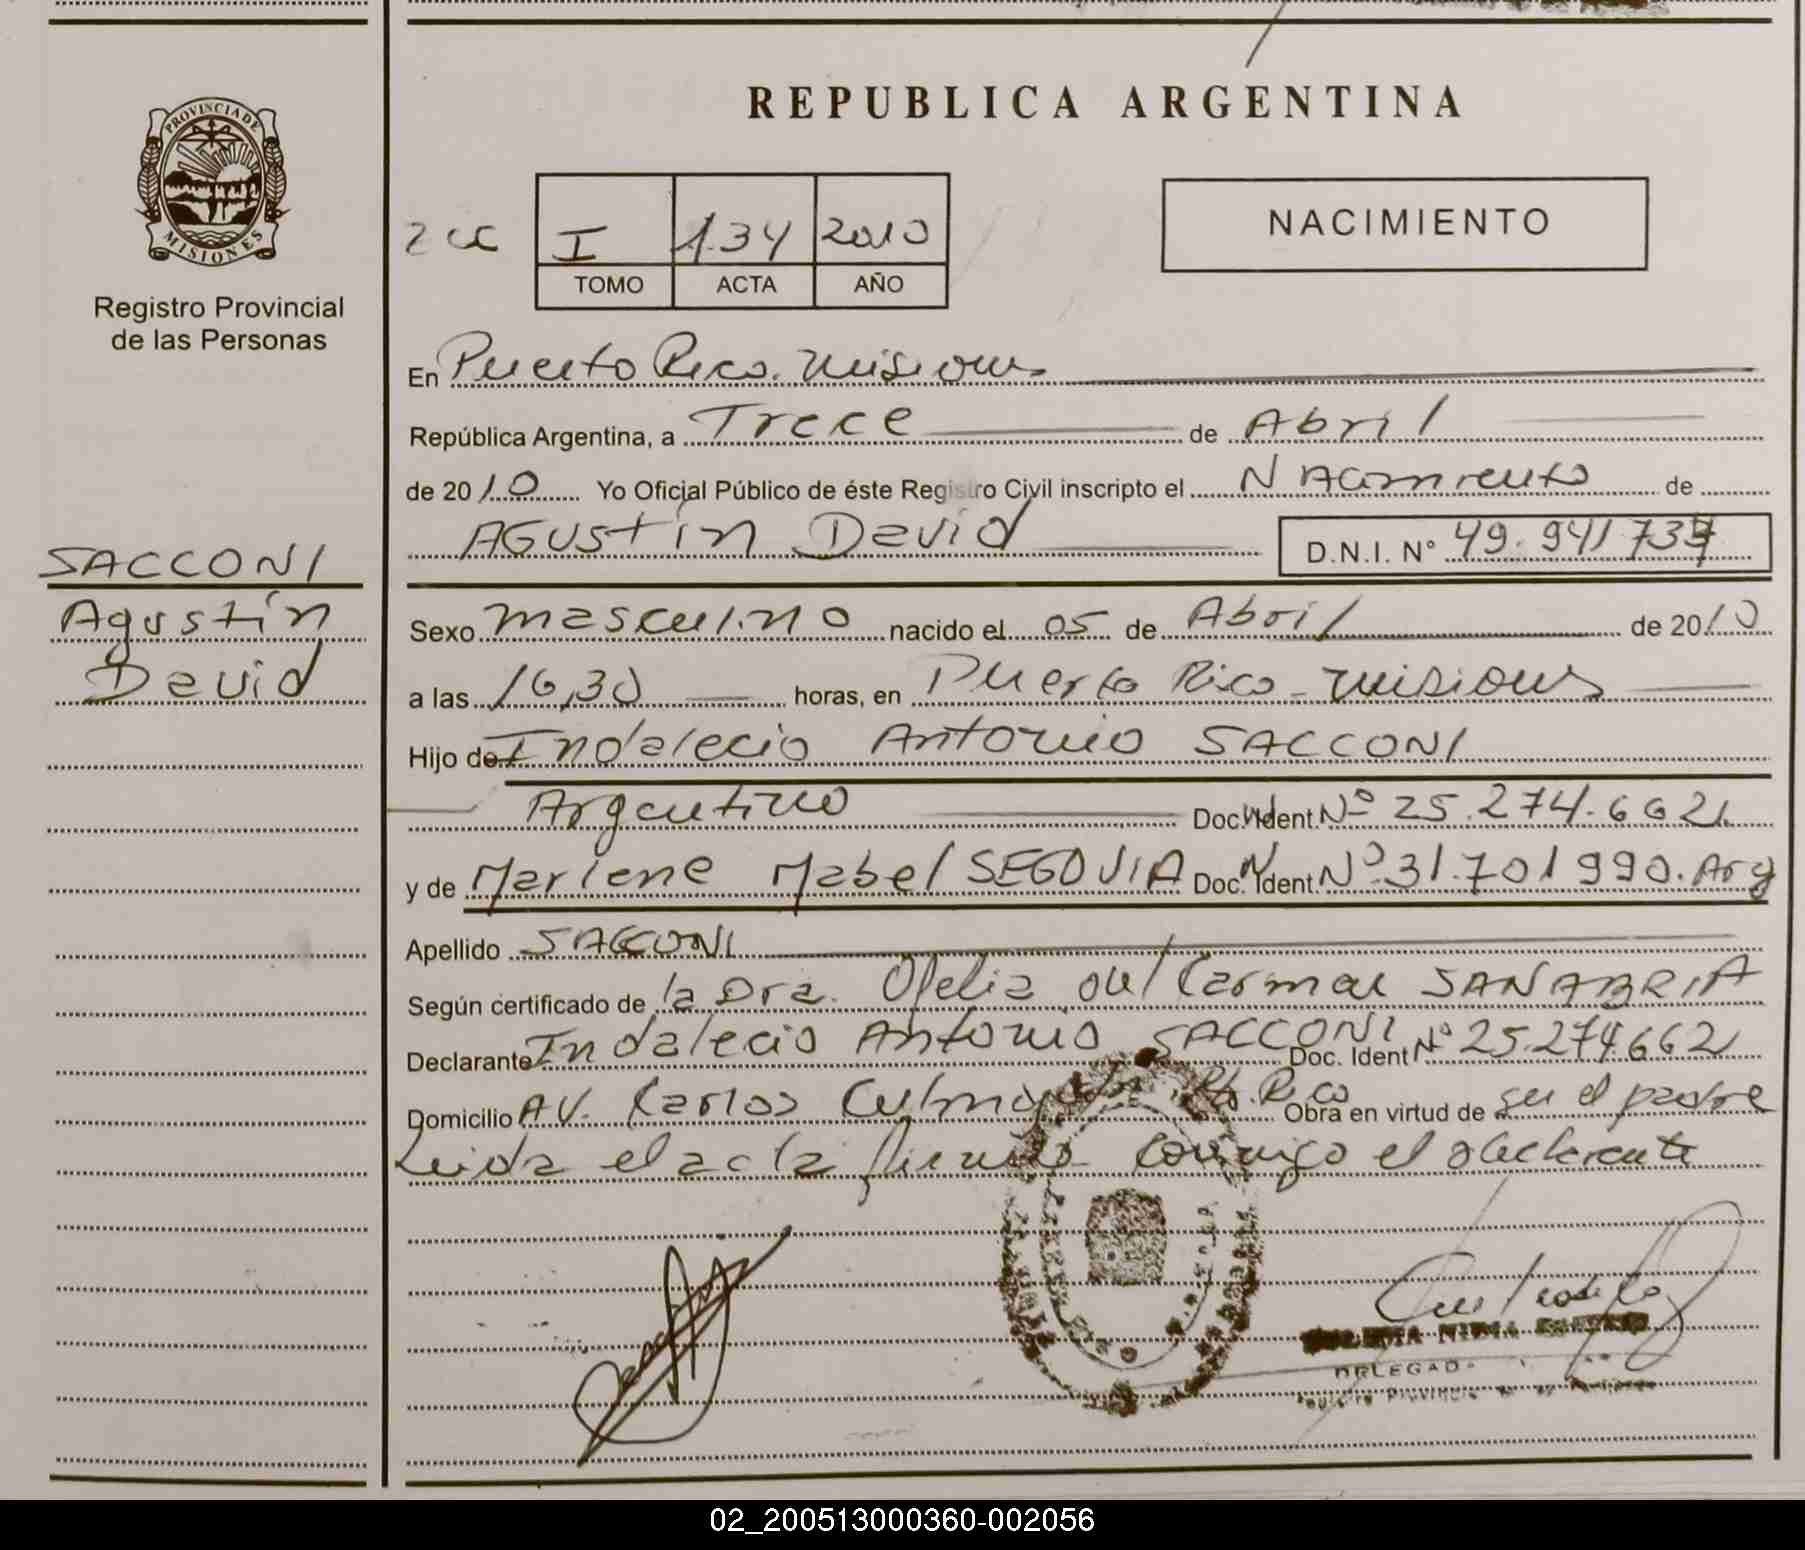 REPUBLICA ARGENTINA
PROVINCIA DE
MISIONES
Registro Provincial
de las Personas
I 134 2010
TOMO ACTA AÑO
NACIMIENTO
En Puerto Rico. Misiones
República Argentina, a Trece de Abril
de 2010 Yo Oficial Público de éste Registro Civil inscripto el Nacimiento de
AGUSTín David D.N.I. N° 49.941737
SACCONI
Agustín
David
Sexo masculino nacido el 05 de Abril de 2010
a las 16,30 horas, en Puerto Rico - Misiones
Hijo de Indalecio Antonio SACCONI
Argentino Doc. Ident Nº 25.274.662
y de Marlene Mabel SEGOVIA Doc. Ident Nº 31.701990. Arg
Apellido SACCONI
Según certificado de la Dra. Ofelia del Carmen SANABRIA
Declarante Indalecio Antonio SACCONI Doc. Ident Nº 25.274.662
Domicilio AV. Carlos Pto. Rico Obra en virtud de ser el padre
Leida el acta firma conmigo el declarante
DELEGADA
02_200513000360-002056